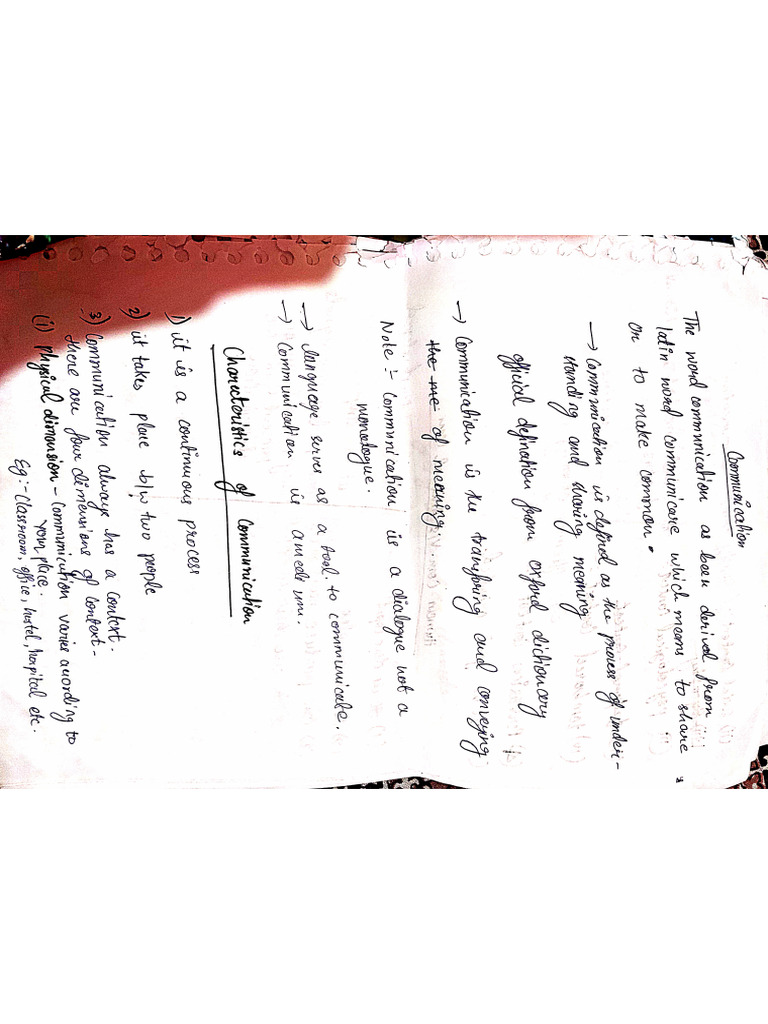 Communication
The word communication as been derived from
latin word communicare which means to share
or to make common.
→ Communication is defined as the process of under-
standing and sharing meaning
official defination from oxford dictionary
→ Communication is the transfering and conveying
the me of meaning.
Note :- Communication is a dialogue not a
monologue.
→ language serves as a tool to communicate.
→ Communication is a medium.
Charactoristics of Communication
1) it is a continuous process
2) it takes place b/w two people
3) Communication always has a context.
there are four dimensions of context-
(i) physical dimension - Communication varies acording to
your place.
Eg:- Classroom, office, hostel, hospital etc.